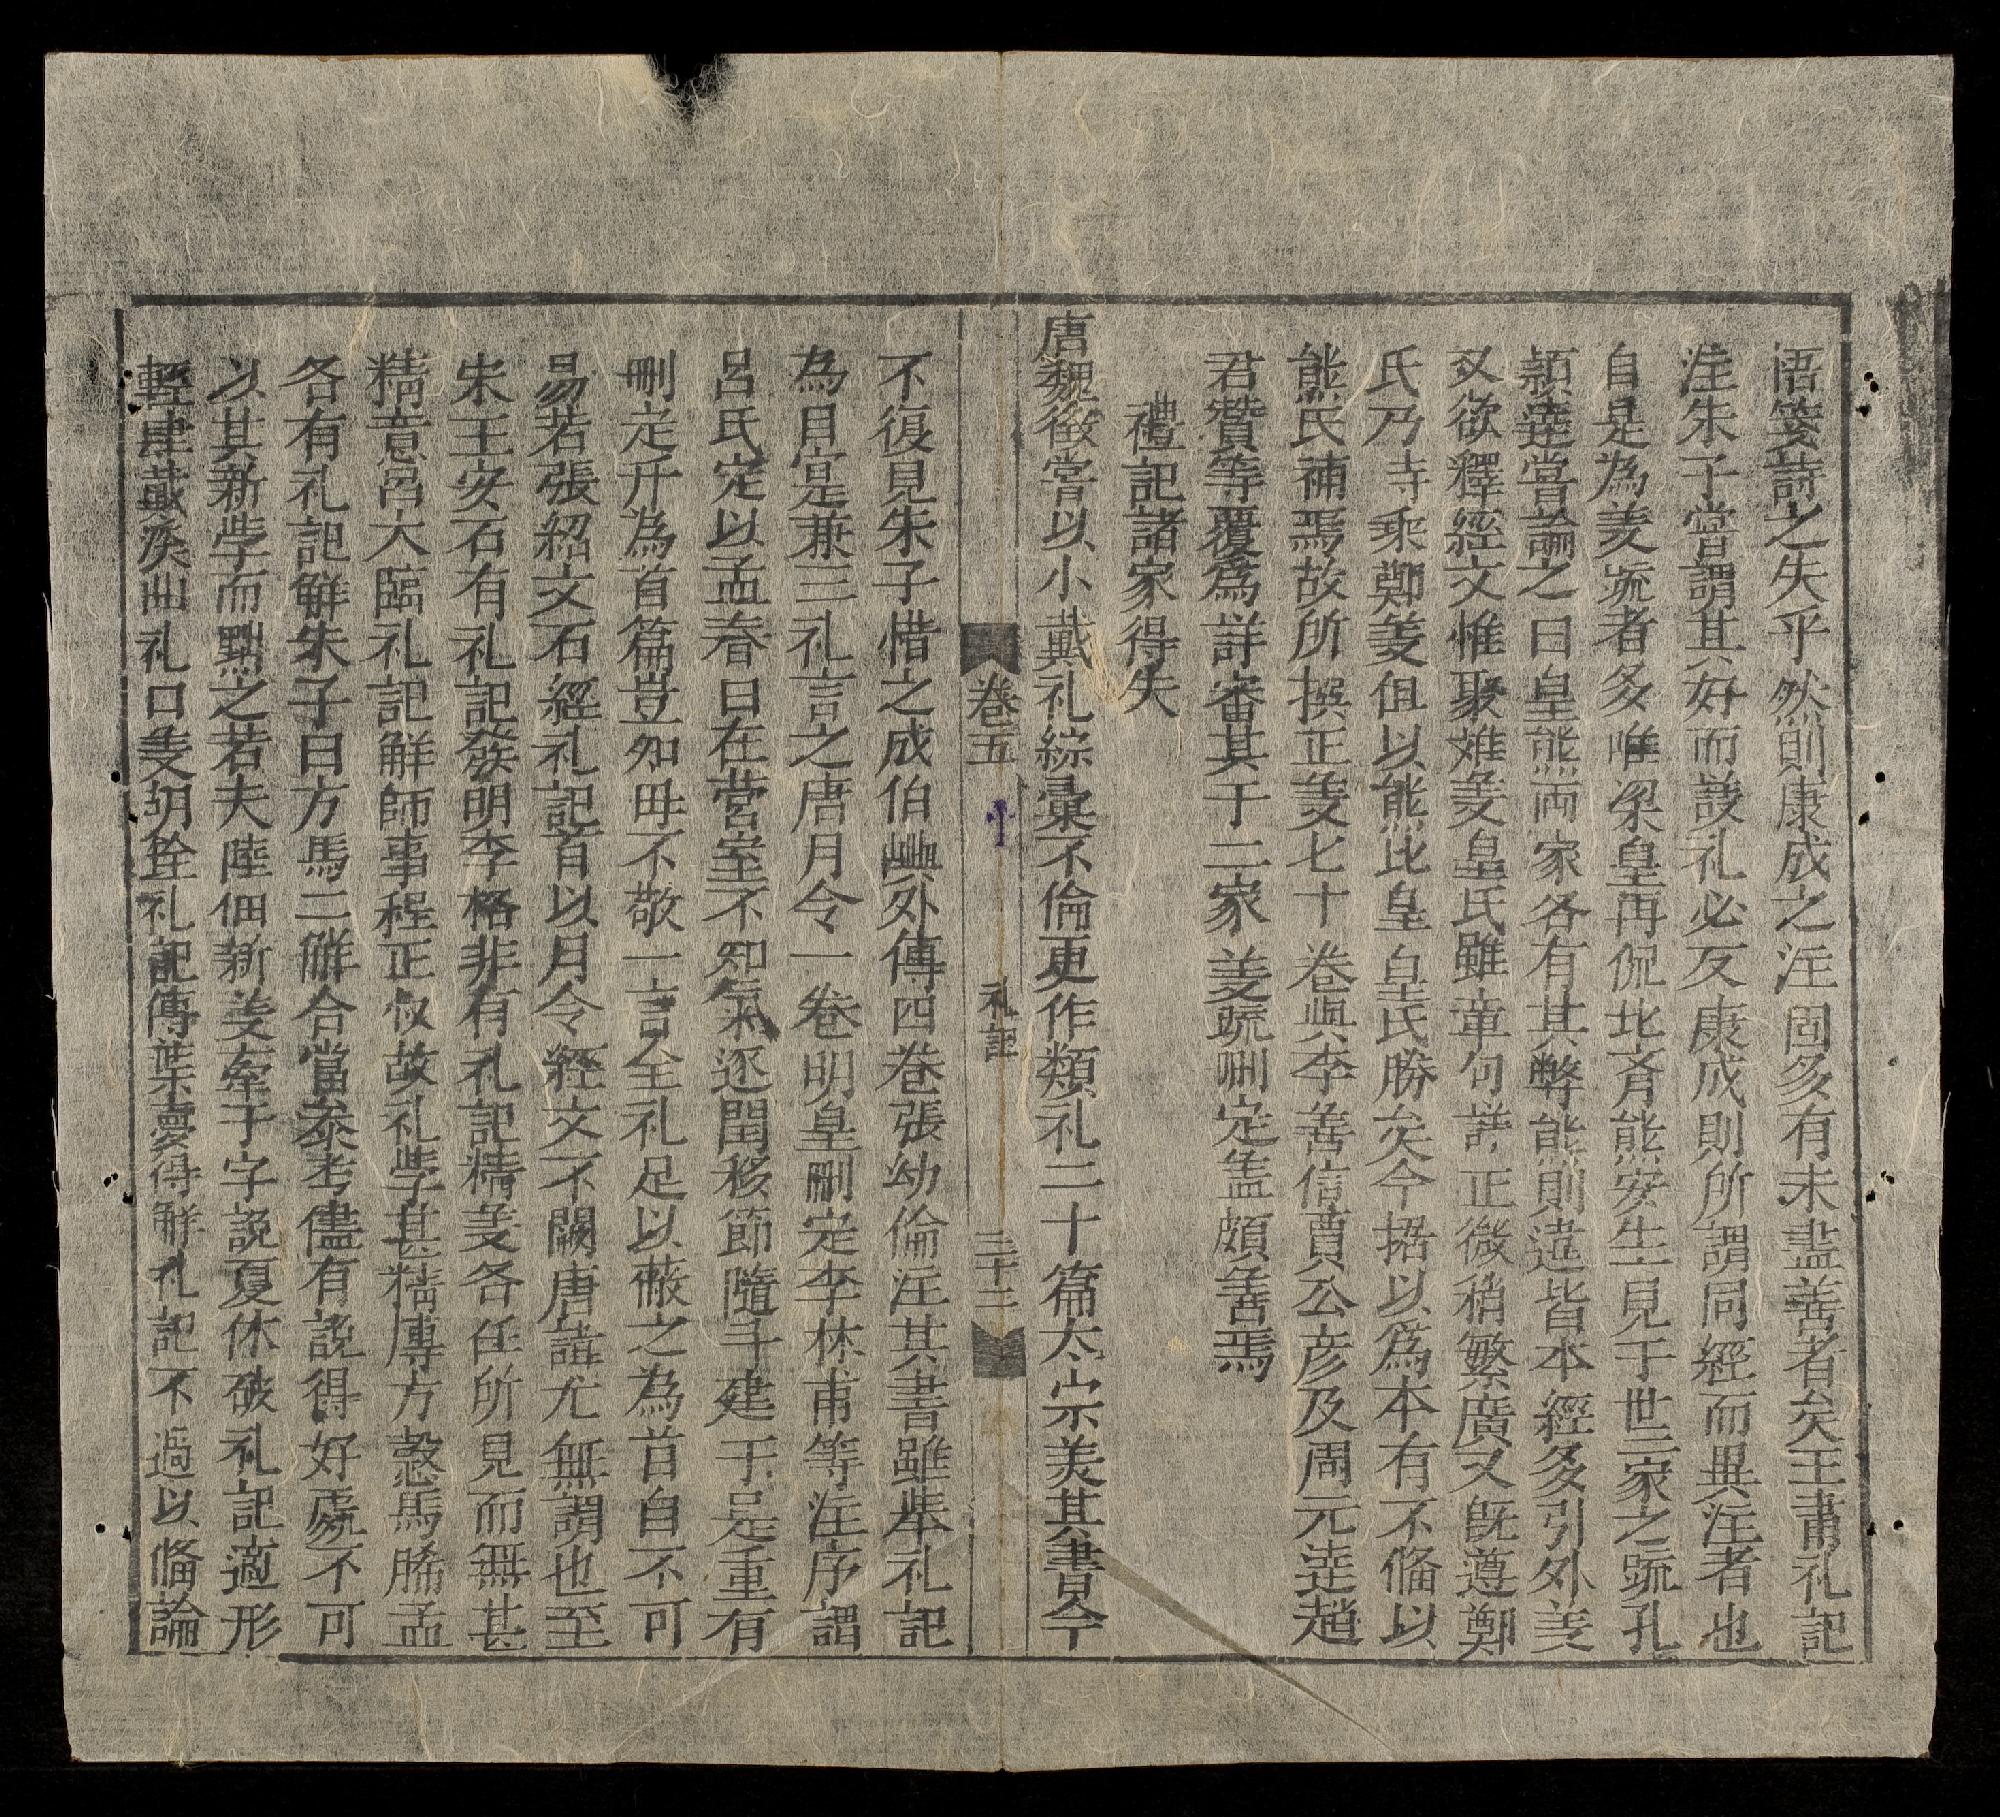 悟箋詩之失乎然則康成之注固多有未盡善者矣王肅礼記
注朱子嘗謂其好而議礼必反康成則所謂同經而異注者也
自是為義疏者多唯梁皇再侃北斉熊安生見于世二家之疏孔
頴達嘗論之曰皇熊両家各有其弊熊則違背本經多引外義
又欲釋經文惟聚难義皇氏雖章句詳正微稍繁廣又既遵鄭
氏乃寺乘鄭義但以熊比皇皇氏勝矣今据以為本有不俻以
熊氏補焉故所撰正義七十卷與李善信賈公彦及周元達趙
君贊等覆為詳審其于二家義疏刪定盖頗善焉
禮記諸家得失
唐魏徵嘗以小戴礼綜彙不倫更作類礼二十篇太宗美其書今
卷五
礼記
三十二
不復見朱子惜之成伯璵外傳四卷張幼倫注其書雖举礼記
為目寔兼三礼言之唐月令一卷明皇刪定李林甫等注序謂
呂氏定以孟春日在营室不知氣逐閏移節隨斗建于是重有
刪定升為首篇豈知毋不敬一言全礼足以蔽之為首自不可
易若張紹文石經礼記首以月令經文不闕唐諱尤無謂也至
宋王安石有礼記發明李格非有礼記精義各任所見而無甚
精意呂大臨礼記解師事程正叔故礼学甚精慱方慤馬脪孟
各有礼記解朱子曰方馬二觧合當叅考儘有說得好處不可
以其新学而黜之若夫陸佃新義牽于字說夏休破礼記適形
輕肆戴溪曲礼口義胡銓礼記傳葉夢得解礼記不過以俻論